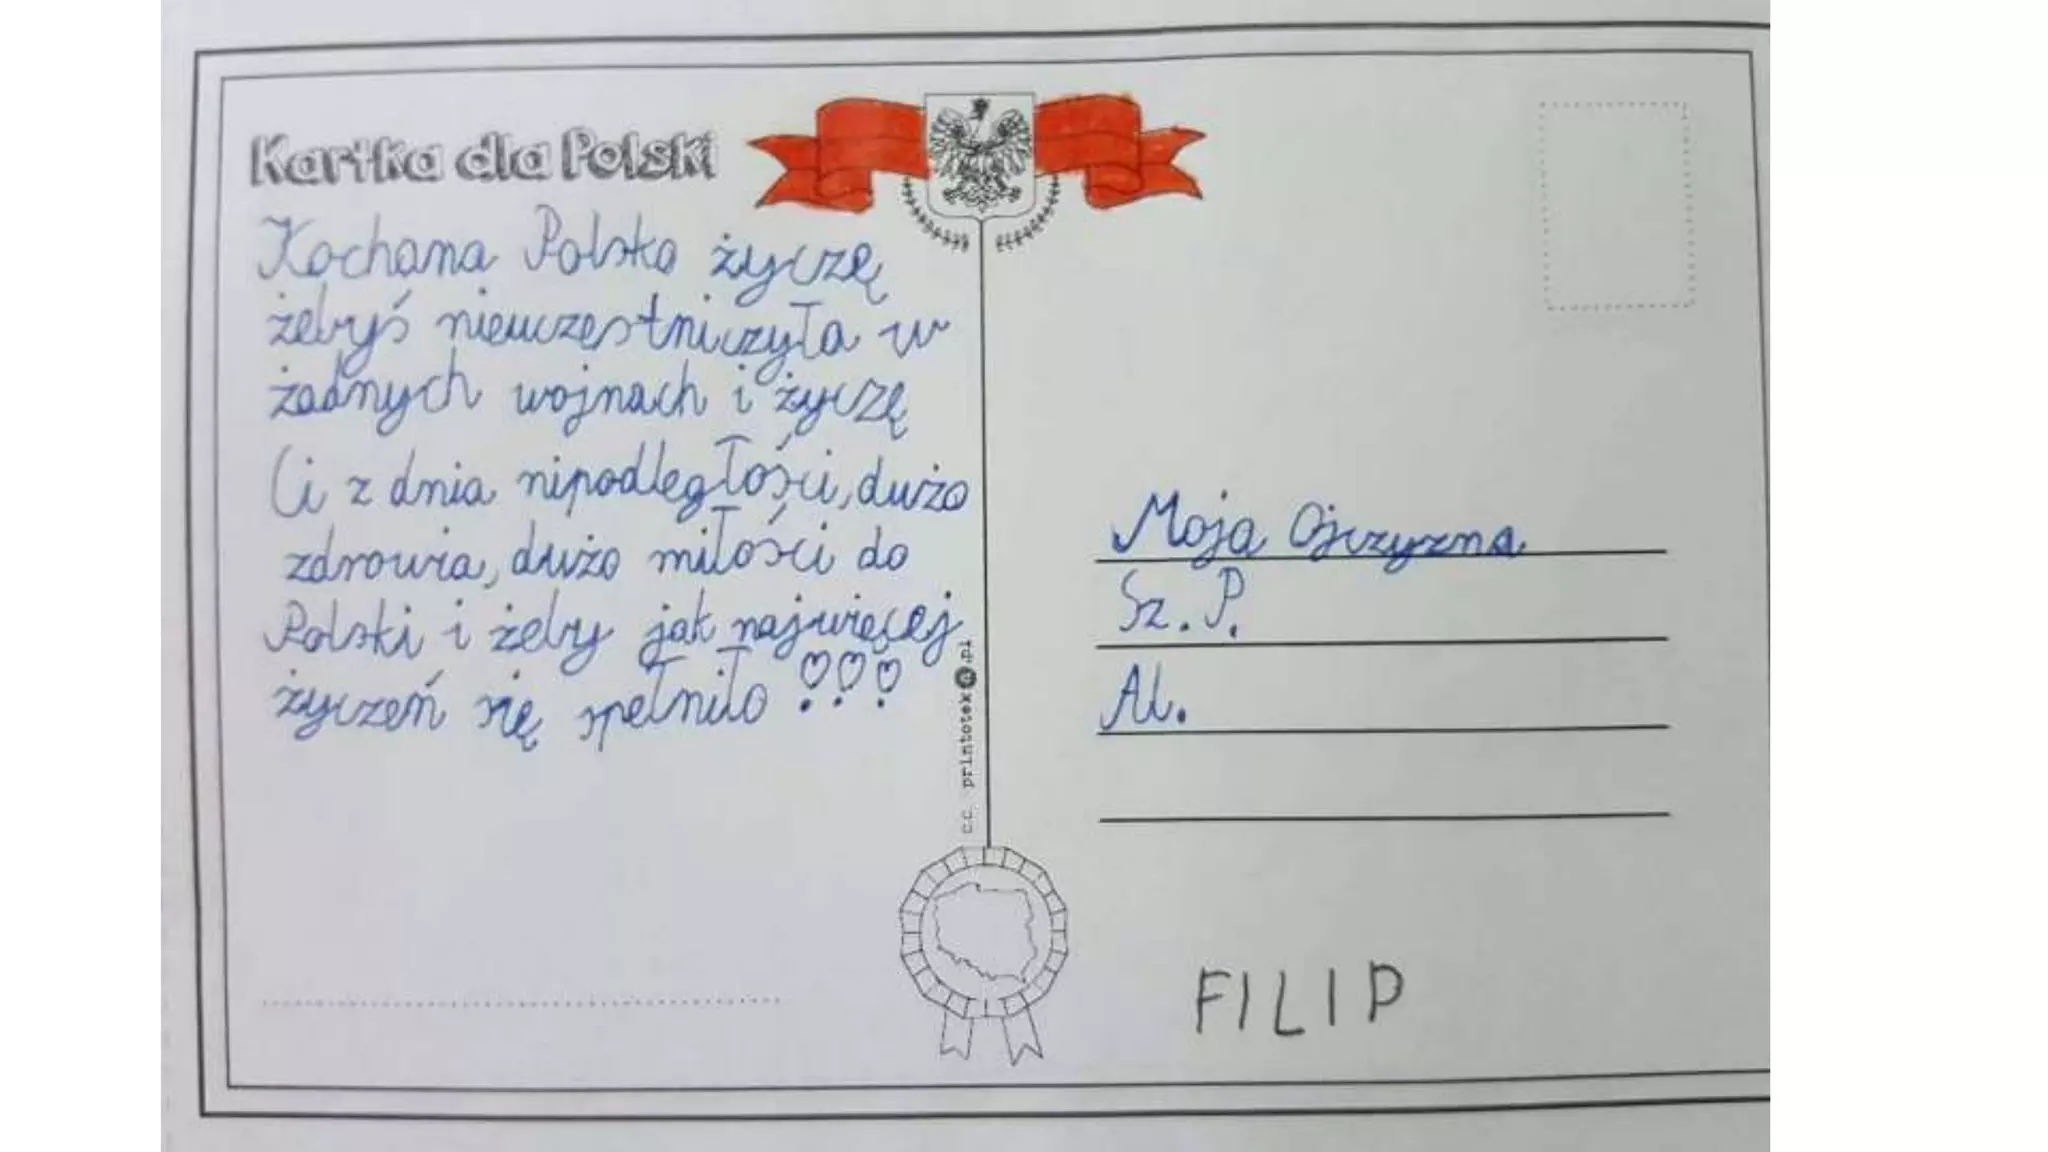 Kartka dla Polski
Kochana Polsko życzę
żebyś nieuczestniczyła w
żadnych wojnach i życzę
Ci z dnia nipodległości, dużo
zdrowia, dużo miłości do
Polski i żeby jak najwięcej
życzeń się spełniło !!!
c.c. printotek a.pl
Moja Ojczyzna
Sz. P.
Al.
FILIP